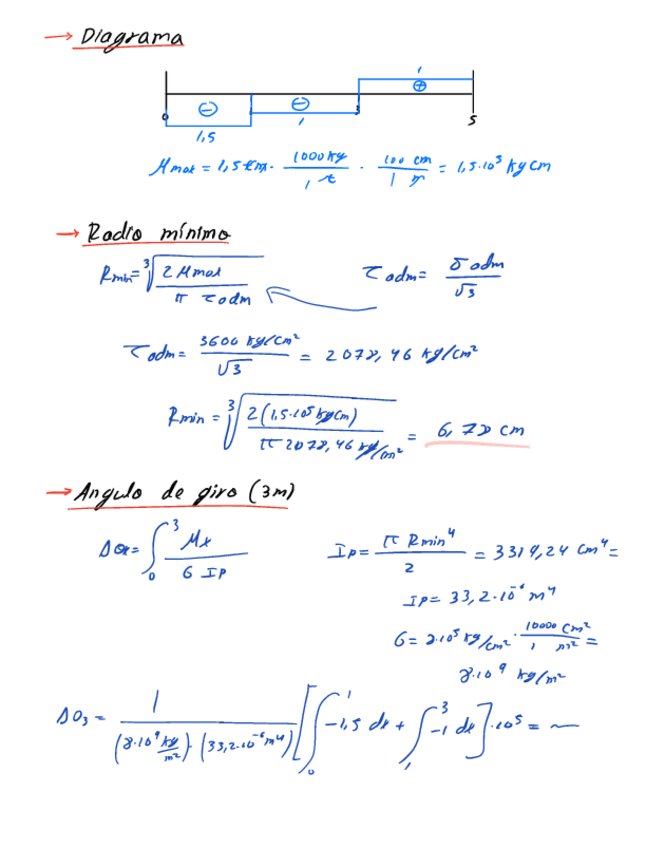 → Diagrama
1
⊕
⊖ ⊖
0 3 5
1,5 1
Mmax = 1,5 t·m · 1000 kg / 1 t · 100 cm / 1 m = 1,5·10⁵ kg cm
→ Radio mínimo
Rmin = ∛(2 Mmax / π τadm) τadm = σadm / √3
τadm = 3600 kg/cm² / √3 = 2078,46 kg/cm²
Rmin = ∛(2(1,5·10⁵ kg cm) / π 2078,46 kg/cm²) = 6,78 cm
→ Angulo de giro (3m)
Δθx = ∫₀³ Mx / G Ip Ip = π Rmin⁴ / 2 = 3319,24 cm⁴ =
Ip = 33,2·10⁻⁶ m⁴
G = 8·10⁵ kg/cm² · 10000 cm² / 1 m² =
8·10⁹ kg/m²
Δθ₃ = 1 / (8·10⁹ kg/m²)·(33,2·10⁻⁶ m⁴) [∫₀¹ -1,5 dx + ∫₁³ -1 dx]·10³ = ~